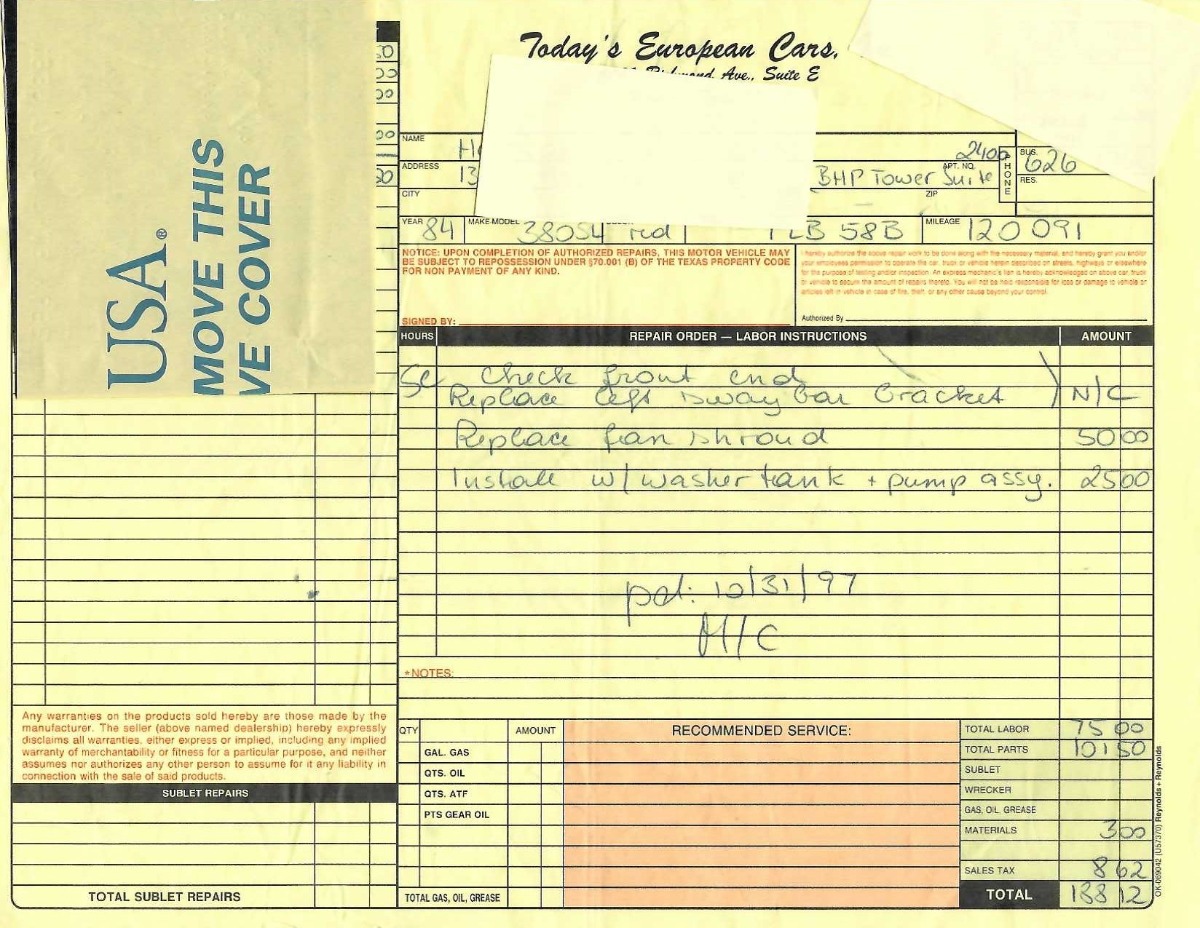 USA®
MOVE THIS
VE COVER
Today's European Cars,
Richmond Ave., Suite E
NAME
ADDRESS 13 BHP Tower Suite 2400
APT. NO.
CITY ZIP
PHONE
BUS. 626
RES.
YEAR 84 MAKE-MODEL 380SL red LB 58B MILEAGE 120 091
NOTICE: UPON COMPLETION OF AUTHORIZED REPAIRS, THIS MOTOR VEHICLE MAY
BE SUBJECT TO REPOSSESSION UNDER §70.001 (B) OF THE TEXAS PROPERTY CODE
FOR NON PAYMENT OF ANY KIND.
SIGNED BY:
I hereby authorize the above repair work to be done along with the necessary material, and hereby grant you and/or
your employees permission to operate the car, truck or vehicle herein described on streets, highways or elsewhere
for the purpose of testing and/or inspection. An express mechanic's lien is hereby acknowledged on above car, truck
or vehicle to secure the amount of repairs thereto. You will not be held responsible for loss or damage to vehicle or
articles left in vehicle in case of fire, theft, or any other cause beyond your control.
Authorized By
HOURS REPAIR ORDER — LABOR INSTRUCTIONS AMOUNT
Check front end
Replace left sway bar bracket ) N/C
Replace fan shroud 50 00
Install w/washer tank + pump assy. 25 00
pd: 10/31/97
M/C
*NOTES:
Any warranties on the products sold hereby are those made by the
manufacturer. The seller (above named dealership) hereby expressly
disclaims all warranties, either express or implied, including any implied
warranty of merchantability or fitness for a particular purpose, and neither
assumes nor authorizes any other person to assume for it any liability in
connection with the sale of said products.
SUBLET REPAIRS
TOTAL SUBLET REPAIRS
QTY AMOUNT
GAL. GAS
QTS. OIL
QTS. ATF
PTS GEAR OIL
TOTAL GAS, OIL, GREASE
RECOMMENDED SERVICE:
TOTAL LABOR 75 00
TOTAL PARTS 101 50
SUBLET
WRECKER
GAS, OIL, GREASE
MATERIALS 3 00
SALES TAX 8 62
TOTAL 188 12
OK-069042 (U57370) Reynolds + Reynolds